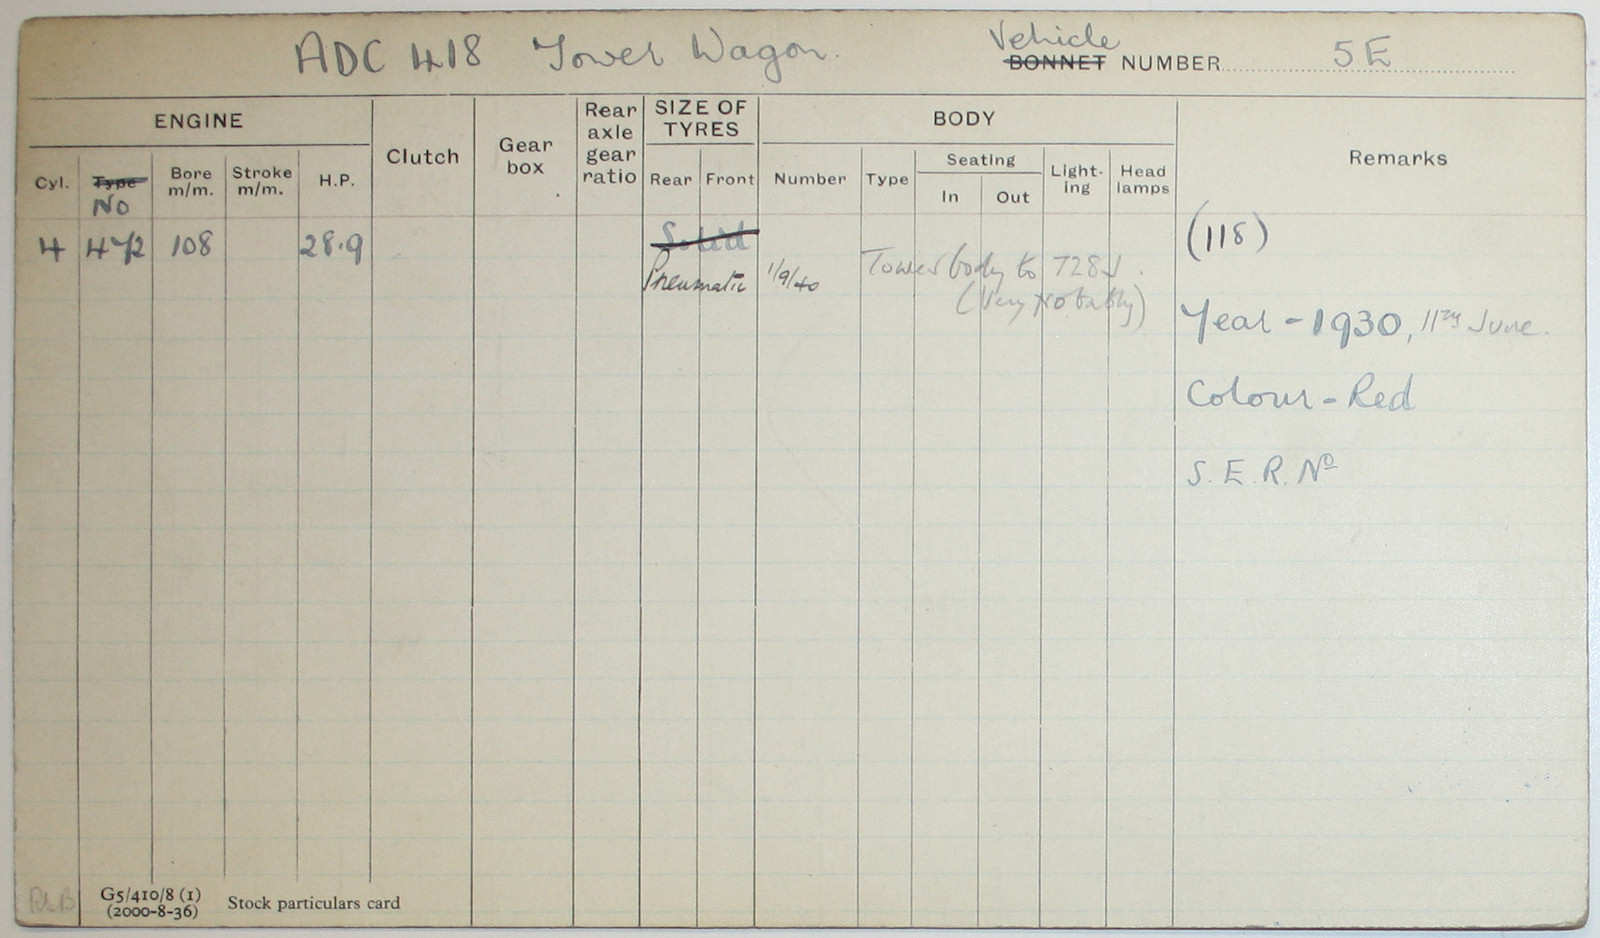 ADC 418 Tower Wagon.
Vehicle
BONNET NUMBER 5E
ENGINE
Clutch
Gear box
Rear axle gear ratio
SIZE OF TYRES
BODY
Remarks
Cyl.
Type
No
Bore m/m.
Stroke m/m.
H.P.
Rear
Front
Number
Type
Seating
In
Out
Light-ing
Head lamps
4 472 108 28.9
Solid
Pneumatic 1/9/40
Tower body to 728J.
(Very probably)
(118)
Year - 1930, 11th June.
Colour - Red
S.E.R. No
G5/410/8 (1)
(2000-8-36)
Stock particulars card